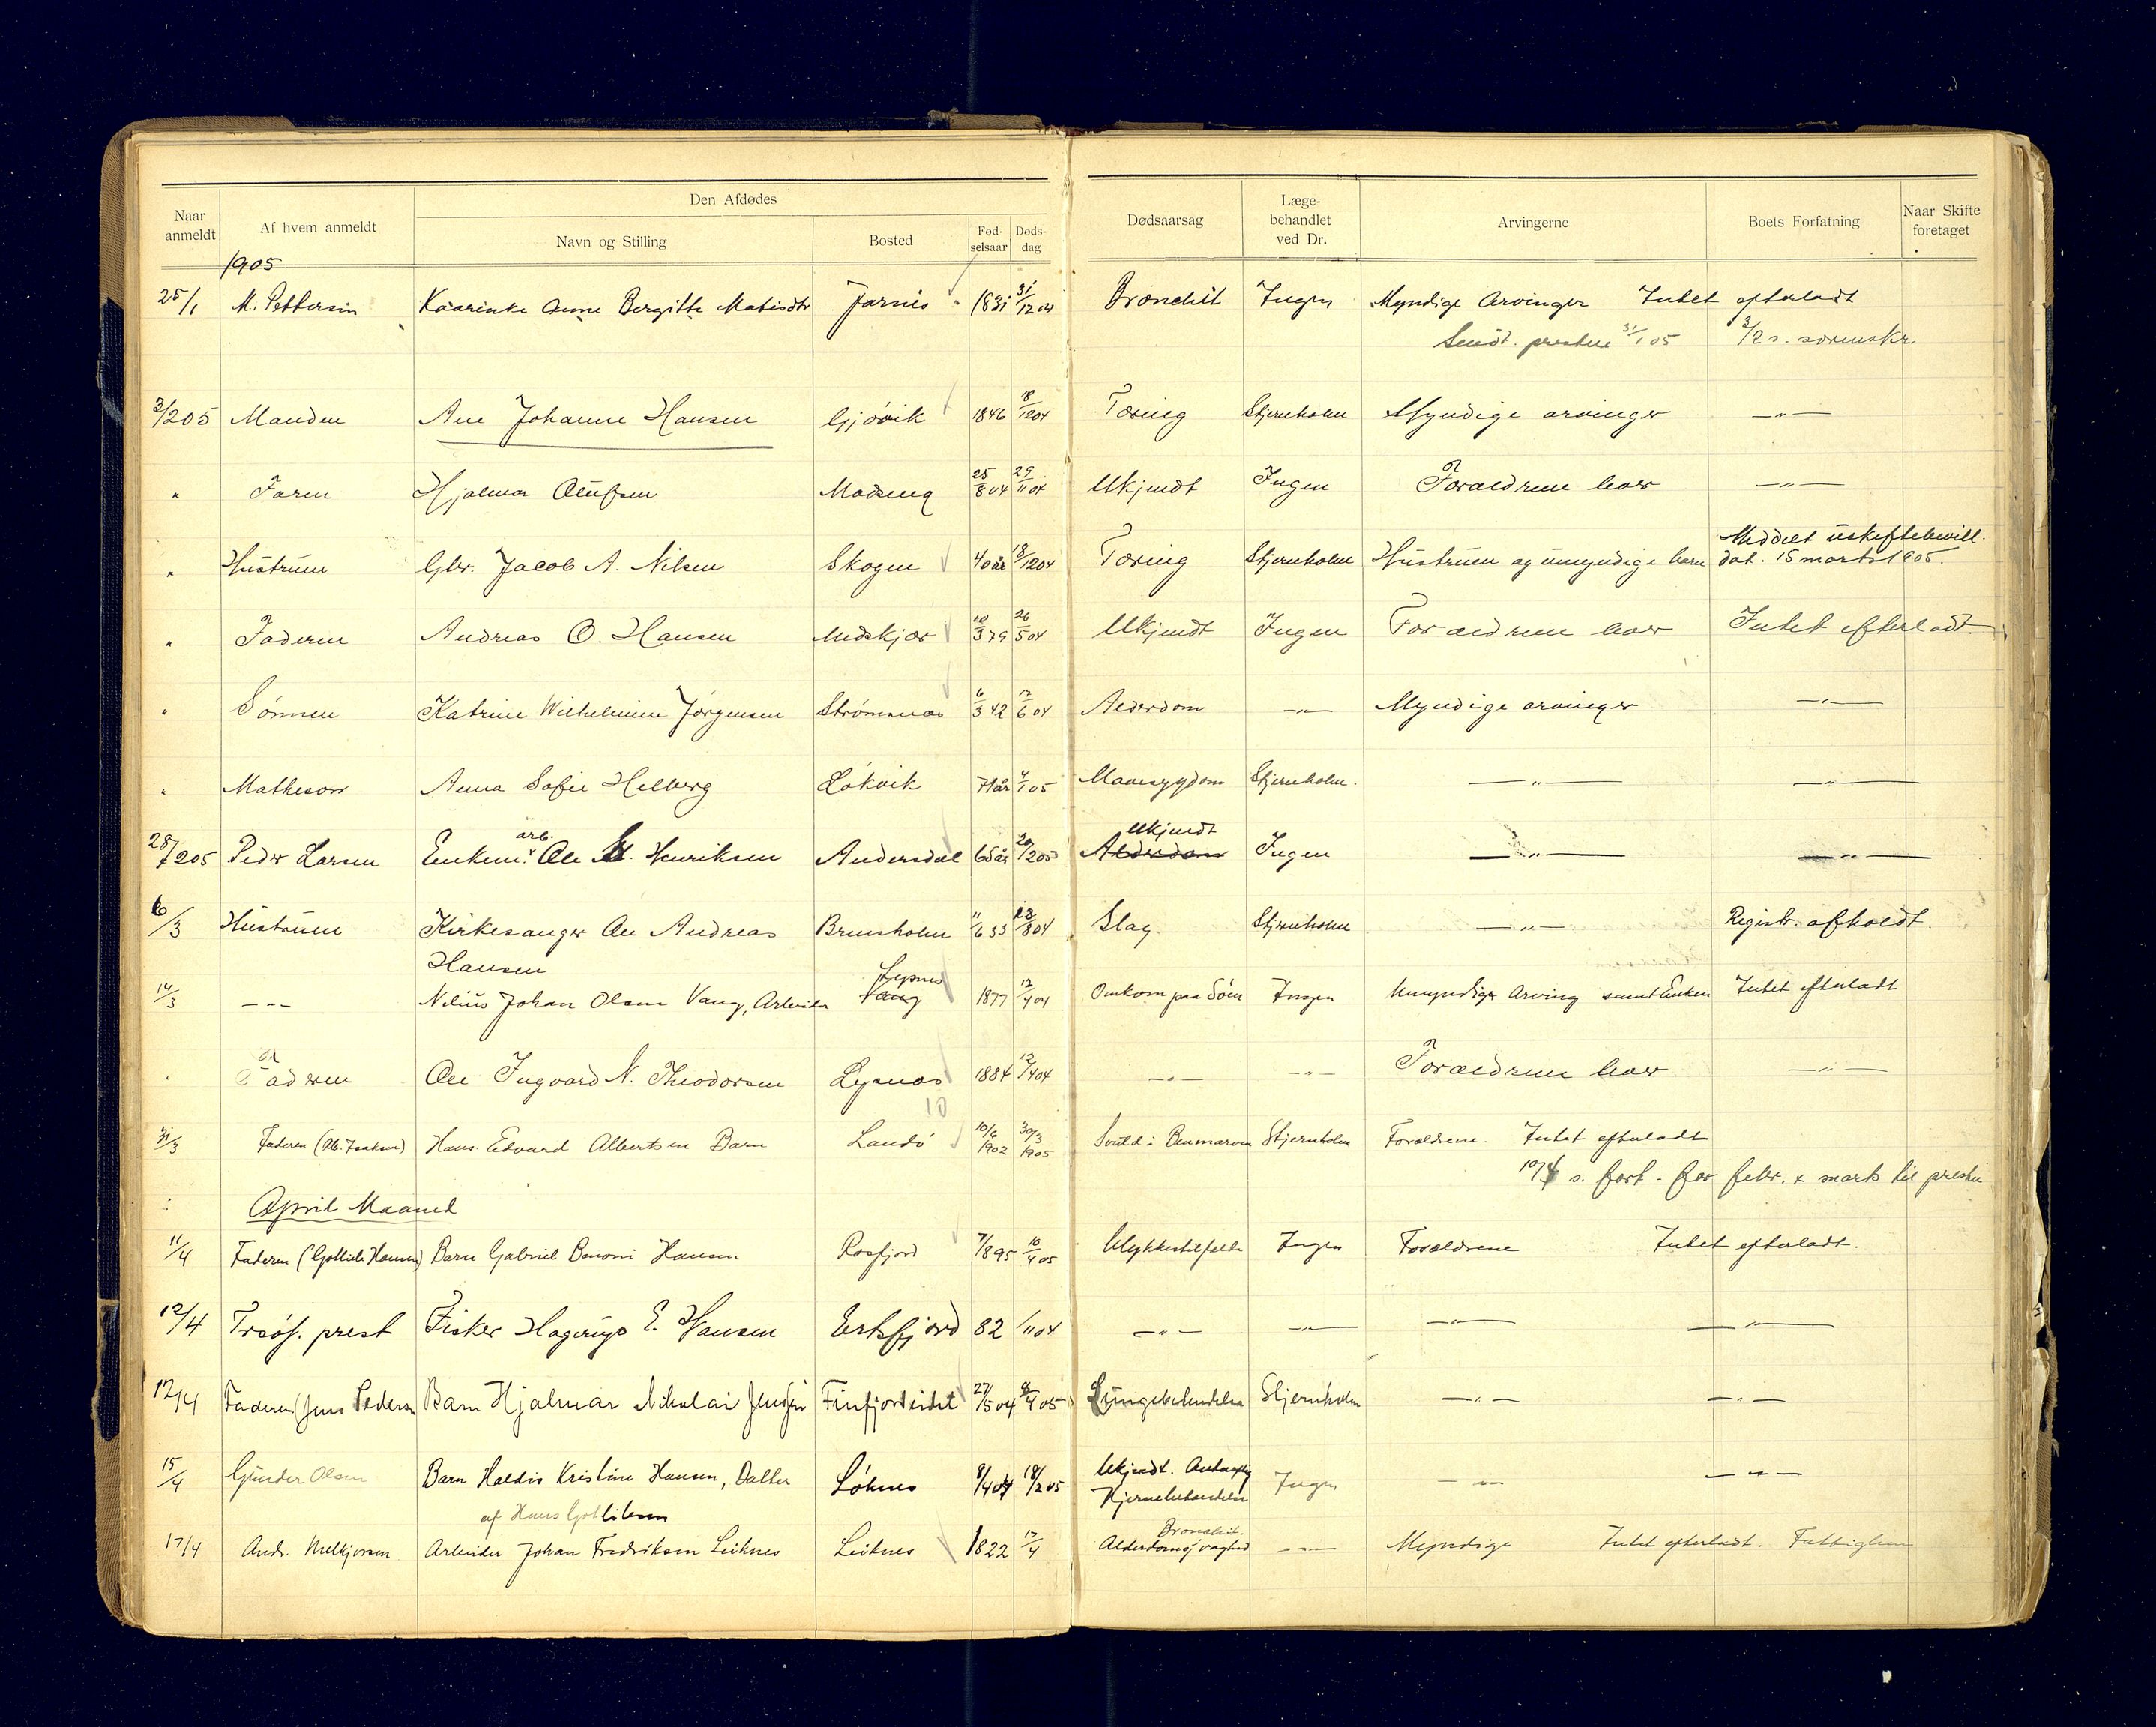 Naar anmeldt | Af hvem anmeldt | Den Afdødes | Dødsaarsag | Læge-behandlet ved Dr. | Arvingerne | Boets Forfatning | Naar Skifte foretaget
Navn og Stilling | Bosted | Fød-selsaar | Døds-dag
1905
25/1 M. Pettersen Kaarinke Anne Bergitte Jarnes 1831 31/12 04 Bronchit Ingen Myndige Arvinger Intet efterladt
Sendt. presten 31/1 05 2/2 s. sorenskr.
3/2 05 Manden Ane Johanne Hansen Gjövik 1846 18/12 04 Tæring Stjernholm Myndige arvinger —"—
" Faren Hjalmar Olufsen 25/8 04 29/11 04 Ukjendt Ingen Forældrene lever —"—
Meddelt uskiftebevill.
" Hustruen Gbr. Jacob A. Nilsen Skogen 40 år 18/12 04 Tæring Stjernholm Hustruen og umyndige barn dat. 15 marts 1905.
" Faderen Andreas O. Hansen Medskjær 10/3 79 26/5 04 Ukjendt Ingen Forældrene lever Intet efterladt.
" Sönnen Katrine Wilhelmine Jörgensen Strömsnæs 6/3 42 12/6 04 Alderdom —"— Myndige arvinger —"—
" Matheson Anna Sofie Helberg Løkvik 71 år 4/1 05 Mavesygdom Stjernholm. —"— —"—
arb. Ukjendt
28/2 05 Peder Larsen Enkem. Ole M. Henriksen Andersdal 65 år 20/2 05 Alderdom Ingen —"— —"—
6/3 Hustruen Kirkesanger Ole Andreas Brensholm 11/6 33 28/8 04 Slag Stjernholm —"— Registr. afholdt.
Hansen
Lysnes
14/3 —"— Nilius Johan Olsen Vang, Arbeider Vang 1877 12/4 04 Omkom paa Söen Ingen Umyndige Arving samt Enken Intet efterladt
" Faderen Ole Ingvard N. Theodorsen Lysnæs 1884 12/4 04 —"— —"— Forældrene lever —"—
10
31/3 Faderen (Alb. Isaksen) Hans Edvard Albertsen Barn Sandö 10/6 1902 30/3 1905 Svuld i Benmarven Stjernholm Forældrene. Intet efterladt
10/4 s. fort. for febr. & marts til presten
April Maaned
11/4 Faderen (Gottlieb Hansen) Barn Gabriel Benoni Hansen Rosfjord 7/8 95 10/4 05 Ulykkestilfælde Ingen Forældrene Intet efterladt.
12/4 Trøf. prest Fisker Hagerup E. Hansen Ersfjord 82 /11 04 —"— —"— —"— —"—
12/4 Faderen (Jens Pedersen Barn Hjalmar Nikolai Jensen Finfjordeidet 27/5 04 8/4 05 Lungebetendelse Stjernholm —"— —"—
15/4 Gunder Olsen Barn Haldis Kristine Hansen, Datter Løknes 8/4 04 18/2 05 Ukjendt. Antagelig Hjernebetændelse Ingen —"— —"—
af Hans Gotliebsen
Bronchit.
17/4 Andr. Melkjorsen Arbeider Johan Fredriksen Leiknes Leiknes 1822 17/4 Alderdomssvaghed —"— Myndige Intet efterladt. Fattiglem